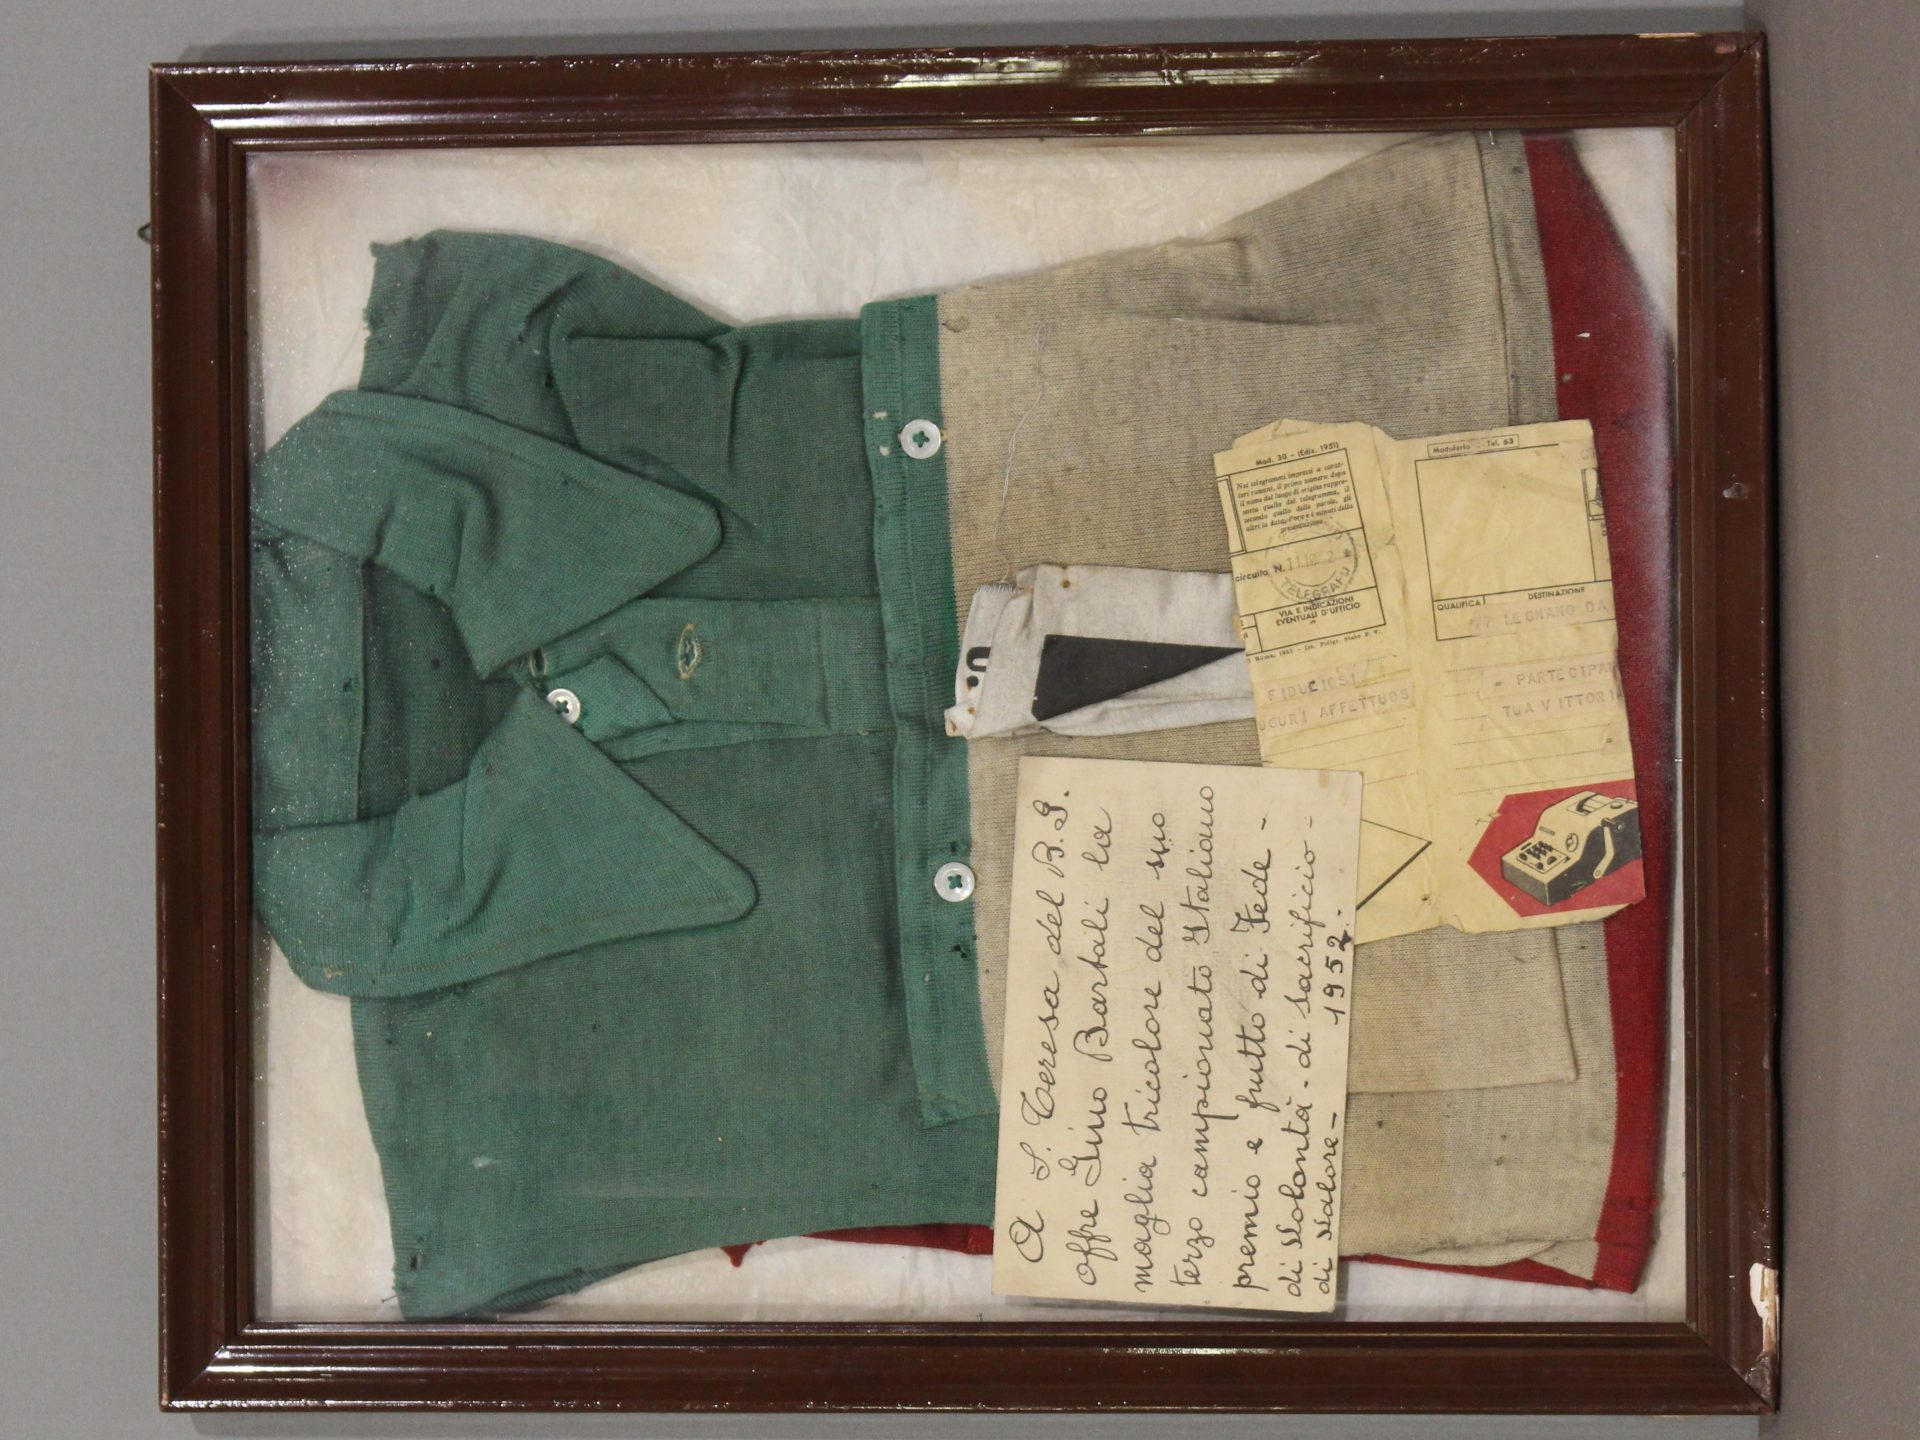 A S. Teresa del B. G.
offre Gino Bartali la
maglia tricolore del suo
terzo campionato Italiano
premio e frutto di Fede -
di volontà - di sacrificio -
di valore - 1952.
Mod. 30 - (Ediz. 1951)
Nei telegrammi impressi a carat-
teri romani, il primo numero dopo
il nome del luogo di origine rappre-
senta quello del telegramma, il
secondo quello delle parole, gli
altri la data, l'ora e i minuti della
presentazione.
circuito N.
TELEGRAFO
VIA E INDICAZIONI
EVENTUALI D'UFFICIO
Roma, 1951 - Ist. Poligr. Stato P. V.
FIDUCIOSI
UGURI AFFETTUOS
Modulario
Tel. 63
QUALIFICA DESTINAZIONE
LEGNANO DA
= PARTECIPA
TUA VITTORI
=
U.